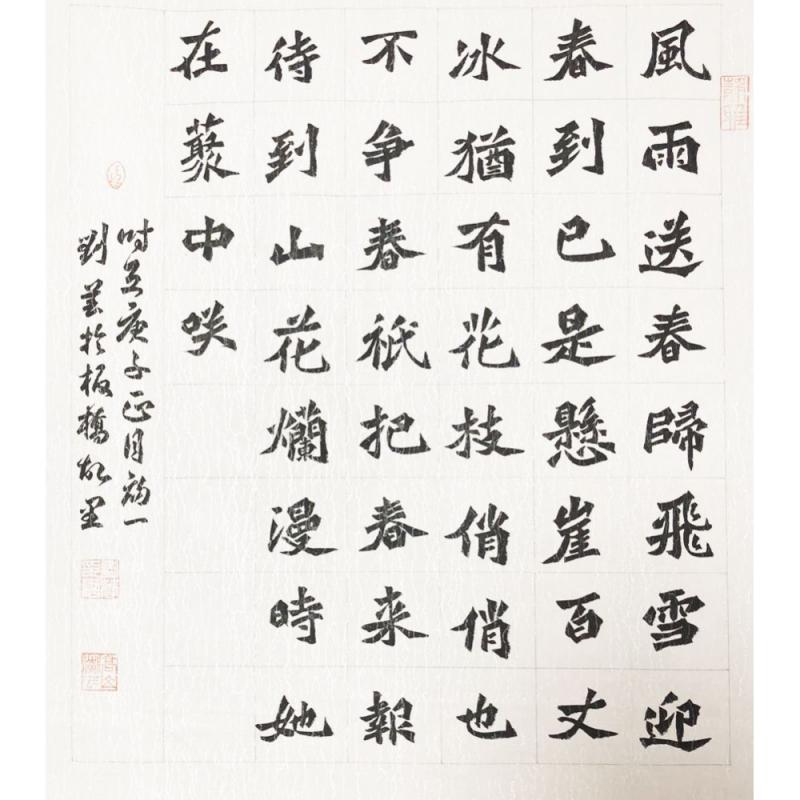 風雨送春歸飛雪迎
春到已是懸崖百丈
冰猶有花枝俏俏也
不争春祇把春来報
待到山花爛漫時她
在藂中咲
时在庚子正月初一
劉於板橋故里